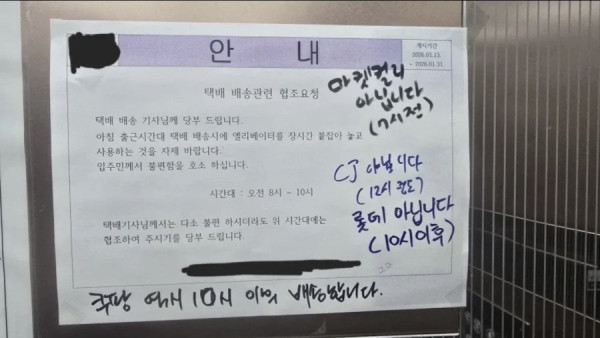 안 내
게시기간
택배 배송관련 협조요청
택배 배송 기사님께 당부 드립니다.
아침 출근시간대 택배 배송시에 엘리베이터를 장시간 붙잡아 놓고
사용하는 것을 자제 바랍니다.
입주민께서 불편함을 호소 하십니다.
시간대 : 오전 8시 ~ 10시
택배기사님께서는 다소 불편 하시더라도 위 시간대에는
협조하여 주시기를 당부 드립니다.
마켓컬리
아닙니다
(7시전)
CJ 아닙니다
(12시 정도)
롯데 아닙니다
(10시이후)
쿠팡 역시 10시 이후 배송합니다.